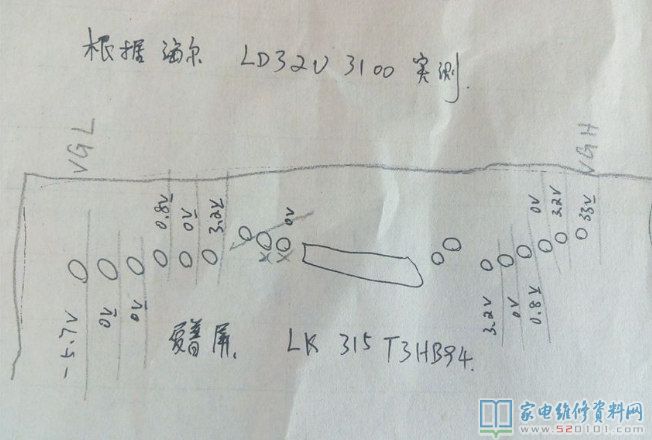 根据海尔 LD32U 3100 实测.
VGL
VGH
0.8V
0V
3.2V
0V
0V
3.2V
33V
-5.7V
0V
0V
3.2V
0V
0.8V
爱普屏. LK 315 T3HB94.
家电维修资料网
www.520101.com